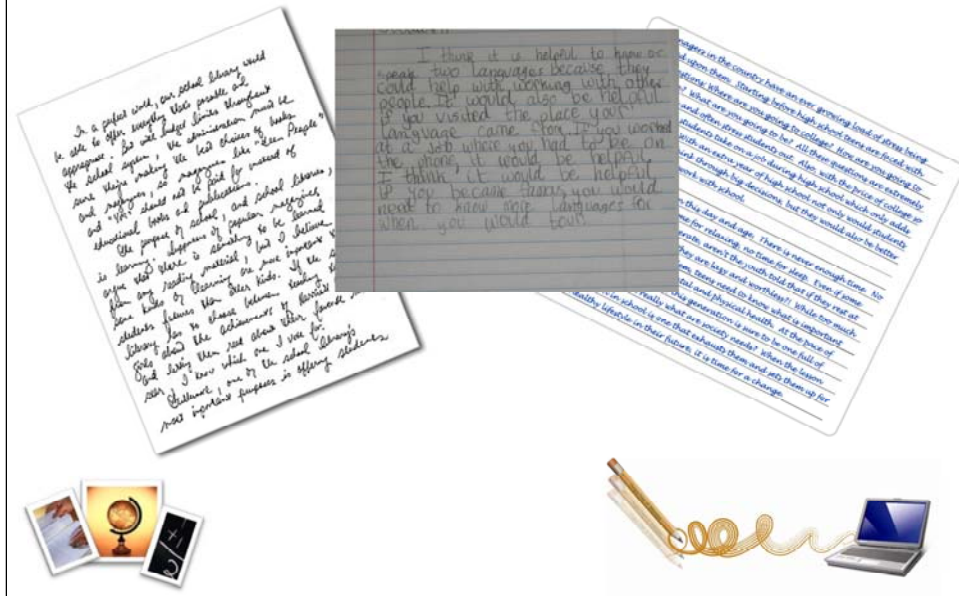 In a perfect world, our school library would
be able to offer everything that's possible and
appropriate, but with budget limits throughout
the school system, the administration must be
sure they're making the best choices of books
and magazines, so magazines like "Teen People"
and "YM" should not be paid for instead of
educational books and publications.
The purpose of school, and school libraries,
is learning. Supporters of popular magazines
argue that there is something to be learned
from any reading material, but I believe
some kinds of learning are more important to
students futures than other kinds. If the
library has to choose between teaching
girls about the achievements of
and letting them read about their favorite
I know which one I vote for.
Furthermore, one of the school library's
most important purposes is offering students
I think it is helpful to know or
speak two languages because they
could help with working with other
people. It would also be helpful
if you visited the place your
language came from. If you worked
at a job where you had to be on
the phone, it would be helpful.
I think, it would be helpful
if you became famous, you would
need to know more languages for
when you would tour.
in the country have an ever growing load of stress being
upon them. Starting before high school teens are faced with
Where are you going to college? How are you going to
What are you going to be? All these questions are extremely
and often stress students out. Also with the price of college so
students take on a job during high school which only adds
with an extra year of high school not only would students
through big decisions, but they would also be better
work with school.
this day and age. There is never enough time. No
time for relaxing, no time for sleep. Even if some
aren't the youth told that if they rest at
they are lazy and worthless!! While too much
teens need to know what is important
and physical health. At the pace of
this generation is sure to be one full of
really what are society needs? When the lesson
in school is one that exhausts them and sets them up for
healthy lifestyle in their future, it is time for a change.